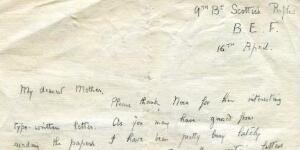 9TH Bn Scottish Rifles
B. E. F.
16TH April.
My dearest Mother,
Please thank Nora for her interesting
type-written letter. As you may have guessed from
reading the papers I have been pretty busy lately
letters